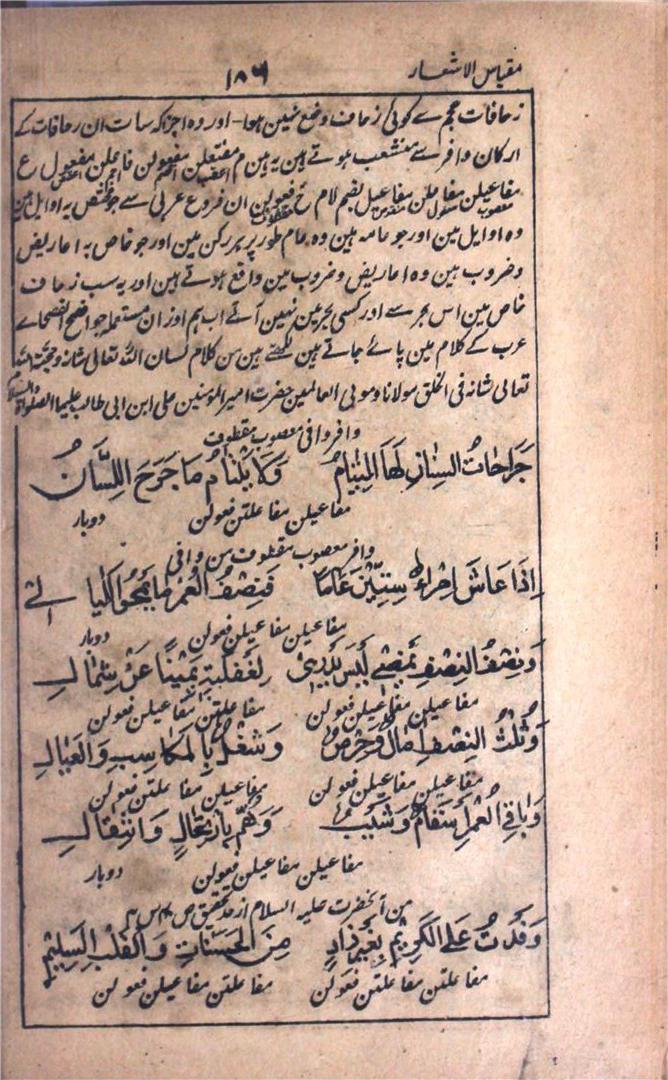 مقیاس الاشعار ۱۸۶
زحافات عجم سے کوئی زحاف وضع نہین ہوا - اور وہ اجزا کہ سات ان زحافات کے
ارکان وافر سے منشعب ہوتے ہین یہ ہین م مفتعلن مفعولن فاعلن مفعول ع
مفاعیلن مفاعلن مفاعیل بضم لام ح فعولن ان فروع عربی سے جو مختص بہ اوایل ہین
وہ اوایل مین اور جو عامہ ہین وہ عام طور پر ہر رکن مین اور جو خاص بہ اعاریض
و ضروب ہین وہ اعاریض و ضروب مین واقع ہوتے ہین اور یہ سب زحاف
خاص مین اس بحر سے اور کسی بحر مین نہین آتے اب ہم اوزان مستعملہ جو افصح الفصحاے
عرب کے کلام مین پائے جاتے ہین لکھتے ہین من کلام لسان اللہ تعالی شانہ و حجۃ اللہ
تعالی شانہ فی الخلق مولانا و مولی العالمین حضرت امیر المؤمنین علی ابن ابی طالب علیہما الصلواۃ والسلام
وافر وافی معصوب مقطوف
جَرَاحَاتُ السِّنَانِ لَهَا الْتِيَامُ وَلَا يَلْتَامُ مَا جَرَحَ اللِّسَانُ
مفاعیلن مفاعلتن فعولن دوبار
وافر معصوب مقطوف من وافی
اِذَا عَاشَ امْرُءٌ سِتِّيْنَ عَامًا فَنِصْفُ الْعُمْرِ تَمْحَقُهُ اللَّيَالِي
مفاعیلن مفاعیلن فعولن دوبار
وَنِصْفُ النِّصْفِ يَمْضِي لَيْسَ يَدْرِي لِغَفْلَتِهِ يَمِيْنًا عَنْ شِمَالِ
مفاعیلن مفاعیلن فعولن مفاعلتن مفاعیلن فعولن
وَثُلْثُ النِّصْفِ اٰمَالٌ وَحِرْصٌ وَشُغْلٌ بِالْمَكَاسِبِ وَالْعِيَالِ
مفاعیلن مفاعیلن فعولن مفاعیلن مفاعلتن فعولن
وَبَاقِي الْعُمْرِ اَسْقَامٌ وَشَيْبٌ وَهَمٌّ بِارْتِحَالٍ وَانْتِقَالِ
مفاعیلن مفاعیلن فعولن دوبار
من آنحضرت علیہ السلام از
وَفَدْتُ عَلَى الْكَرِيْمِ بِغَيْرِ زَادٍ مِنَ الْحَسَنَاتِ وَالْقَلْبِ السَّلِيْمِ
مفاعلتن مفاعلتن فعولن مفاعلتن مفاعیلن فعولن